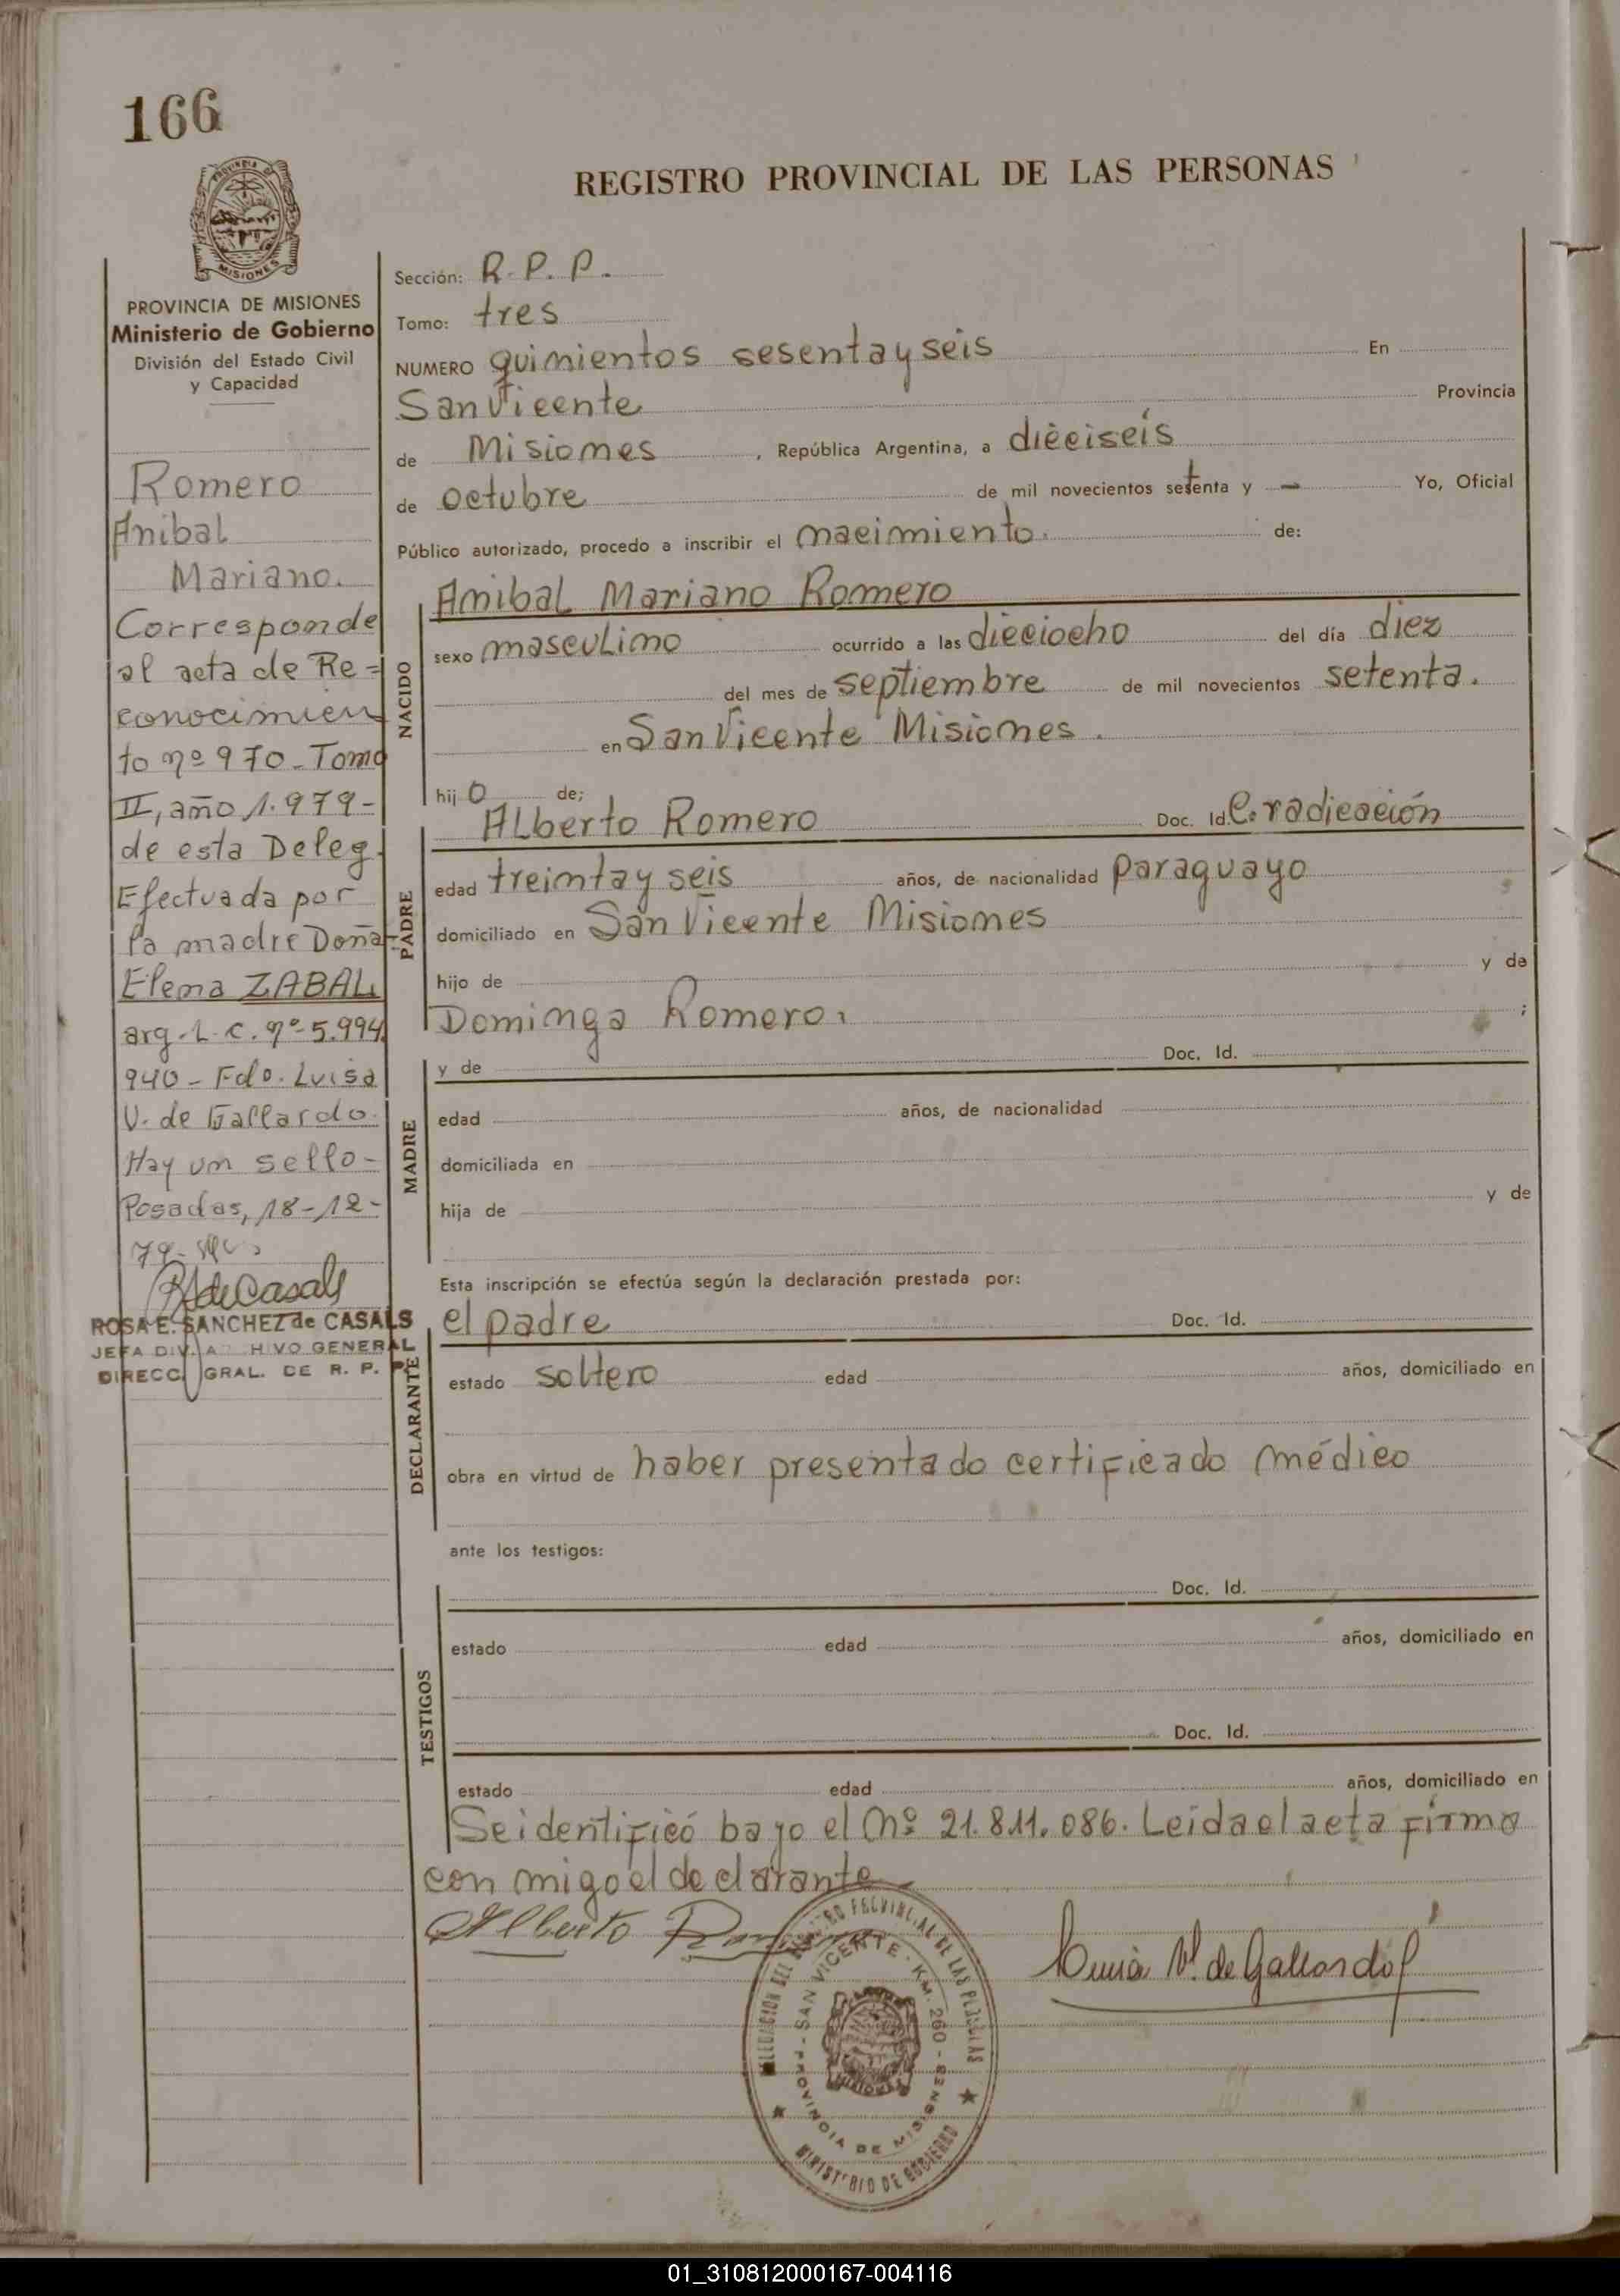 166
REGISTRO PROVINCIAL DE LAS PERSONAS
PROVINCIA
MISIONES
PROVINCIA DE MISIONES
Ministerio de Gobierno
División del Estado Civil
y Capacidad
Romero
Anibal
Mariano.
Corresponde
al acta de Re=
conocimien
to nº 970-Tomo
II, año 1.979-
de esta Deleg.
Efectuada por
la madre Doña
Elena ZABAL
arg-L-C. nº-5.994
940-Fdo. Luisa
V. de Gallardo.
Hay un sello-
Posadas, 18-12-
79-
RSdeCasals
ROSA E. SANCHEZ de CASALS
JEFA DIV. A HIVO GENERAL
DIRECC. GRAL. DE R. P. P.
Sección: R.P.P.
Tomo: tres
NUMERO quinientos sesentayseis En
San Vicente Provincia
de Misiones, República Argentina, a dieciseís
de octubre de mil novecientos setenta y - Yo, Oficial
Público autorizado, procedo a inscribir el nacimiento. de:
NACIDO
Anibal Mariano Romero
sexo masculino ocurrido a las dieciocho del día diez
del mes de septiembre de mil novecientos setenta.
en San Vicente Misiones.
hijo de;
PADRE
Alberto Romero Doc. Id. C. radicación
edad treintay seis años, de nacionalidad paraguayo
domiciliado en San Vicente Misiones
hijo de y de
Dominga Romero. ;
MADRE
y de Doc. Id.
edad años, de nacionalidad
domiciliada en
hija de y de
Esta inscripción se efectúa según la declaración prestada por:
DECLARANTE
el padre Doc. Id.
estado soltero edad años, domiciliado en
obra en virtud de haber presentado certificado médico
ante los testigos:
TESTIGOS
Doc. Id.
estado edad años, domiciliado en
Doc. Id.
estado edad años, domiciliado en
Se identificó bajo el Nº 21.811.086. Leida el acta firma
con migo el declarante
Alberto Romero
V. de Gallardo
DELEGACION DEL REGISTRO PROVINCIAL DE LAS PERSONAS
SAN VICENTE - KM. 260 -
PROVINCIA DE MISIONES
MINISTERIO DE GOBIERNO
01_310812000167-004116